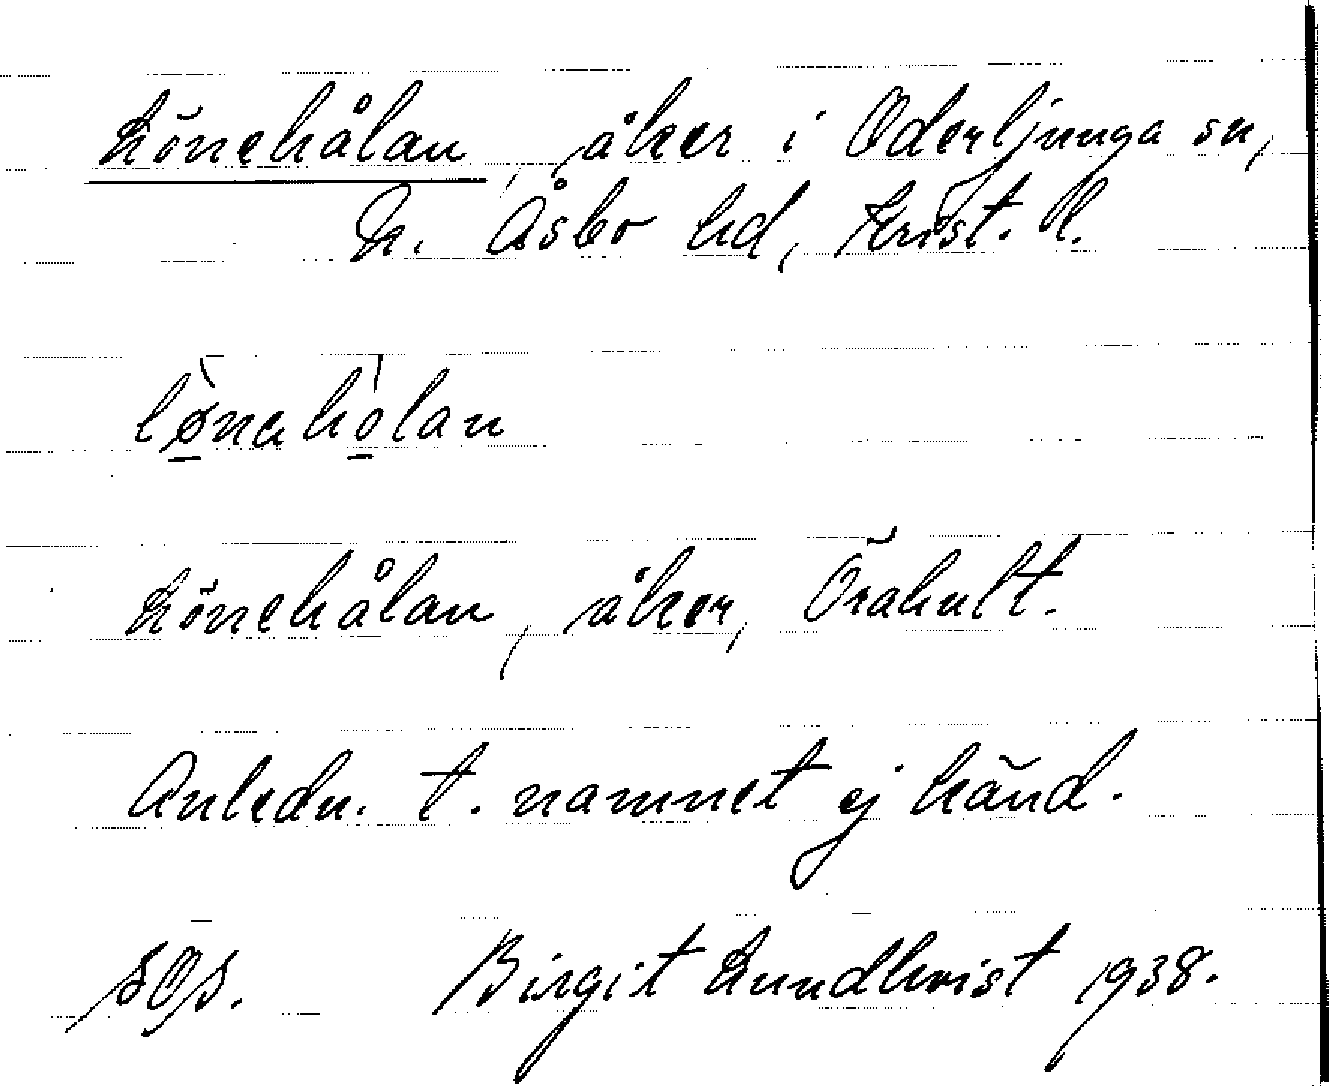 Lönehålan, åker i Oderljunga sn,
N. Åsbo hd, Krist. l.
lønahòlan
Lönehålan, åker, Örahult.
Anledn. t. namnet ej känd.
SOS. Birgit Lundkvist 1938.